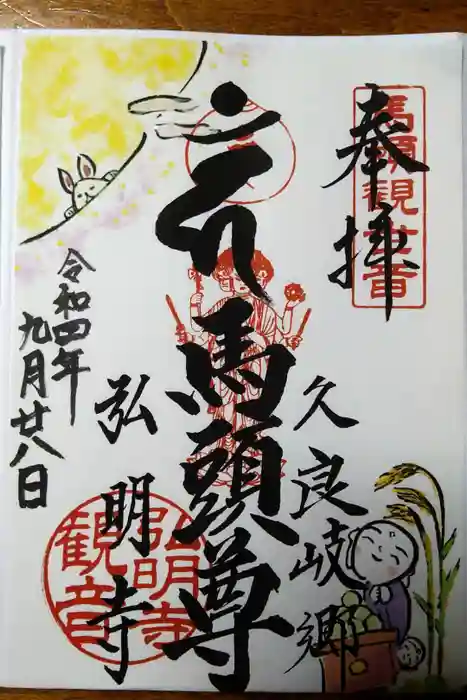 奉拝
馬頭観世音
久良岐郷
馬頭尊
弘明寺
弘明寺
観音
令和四年
九月廿八日